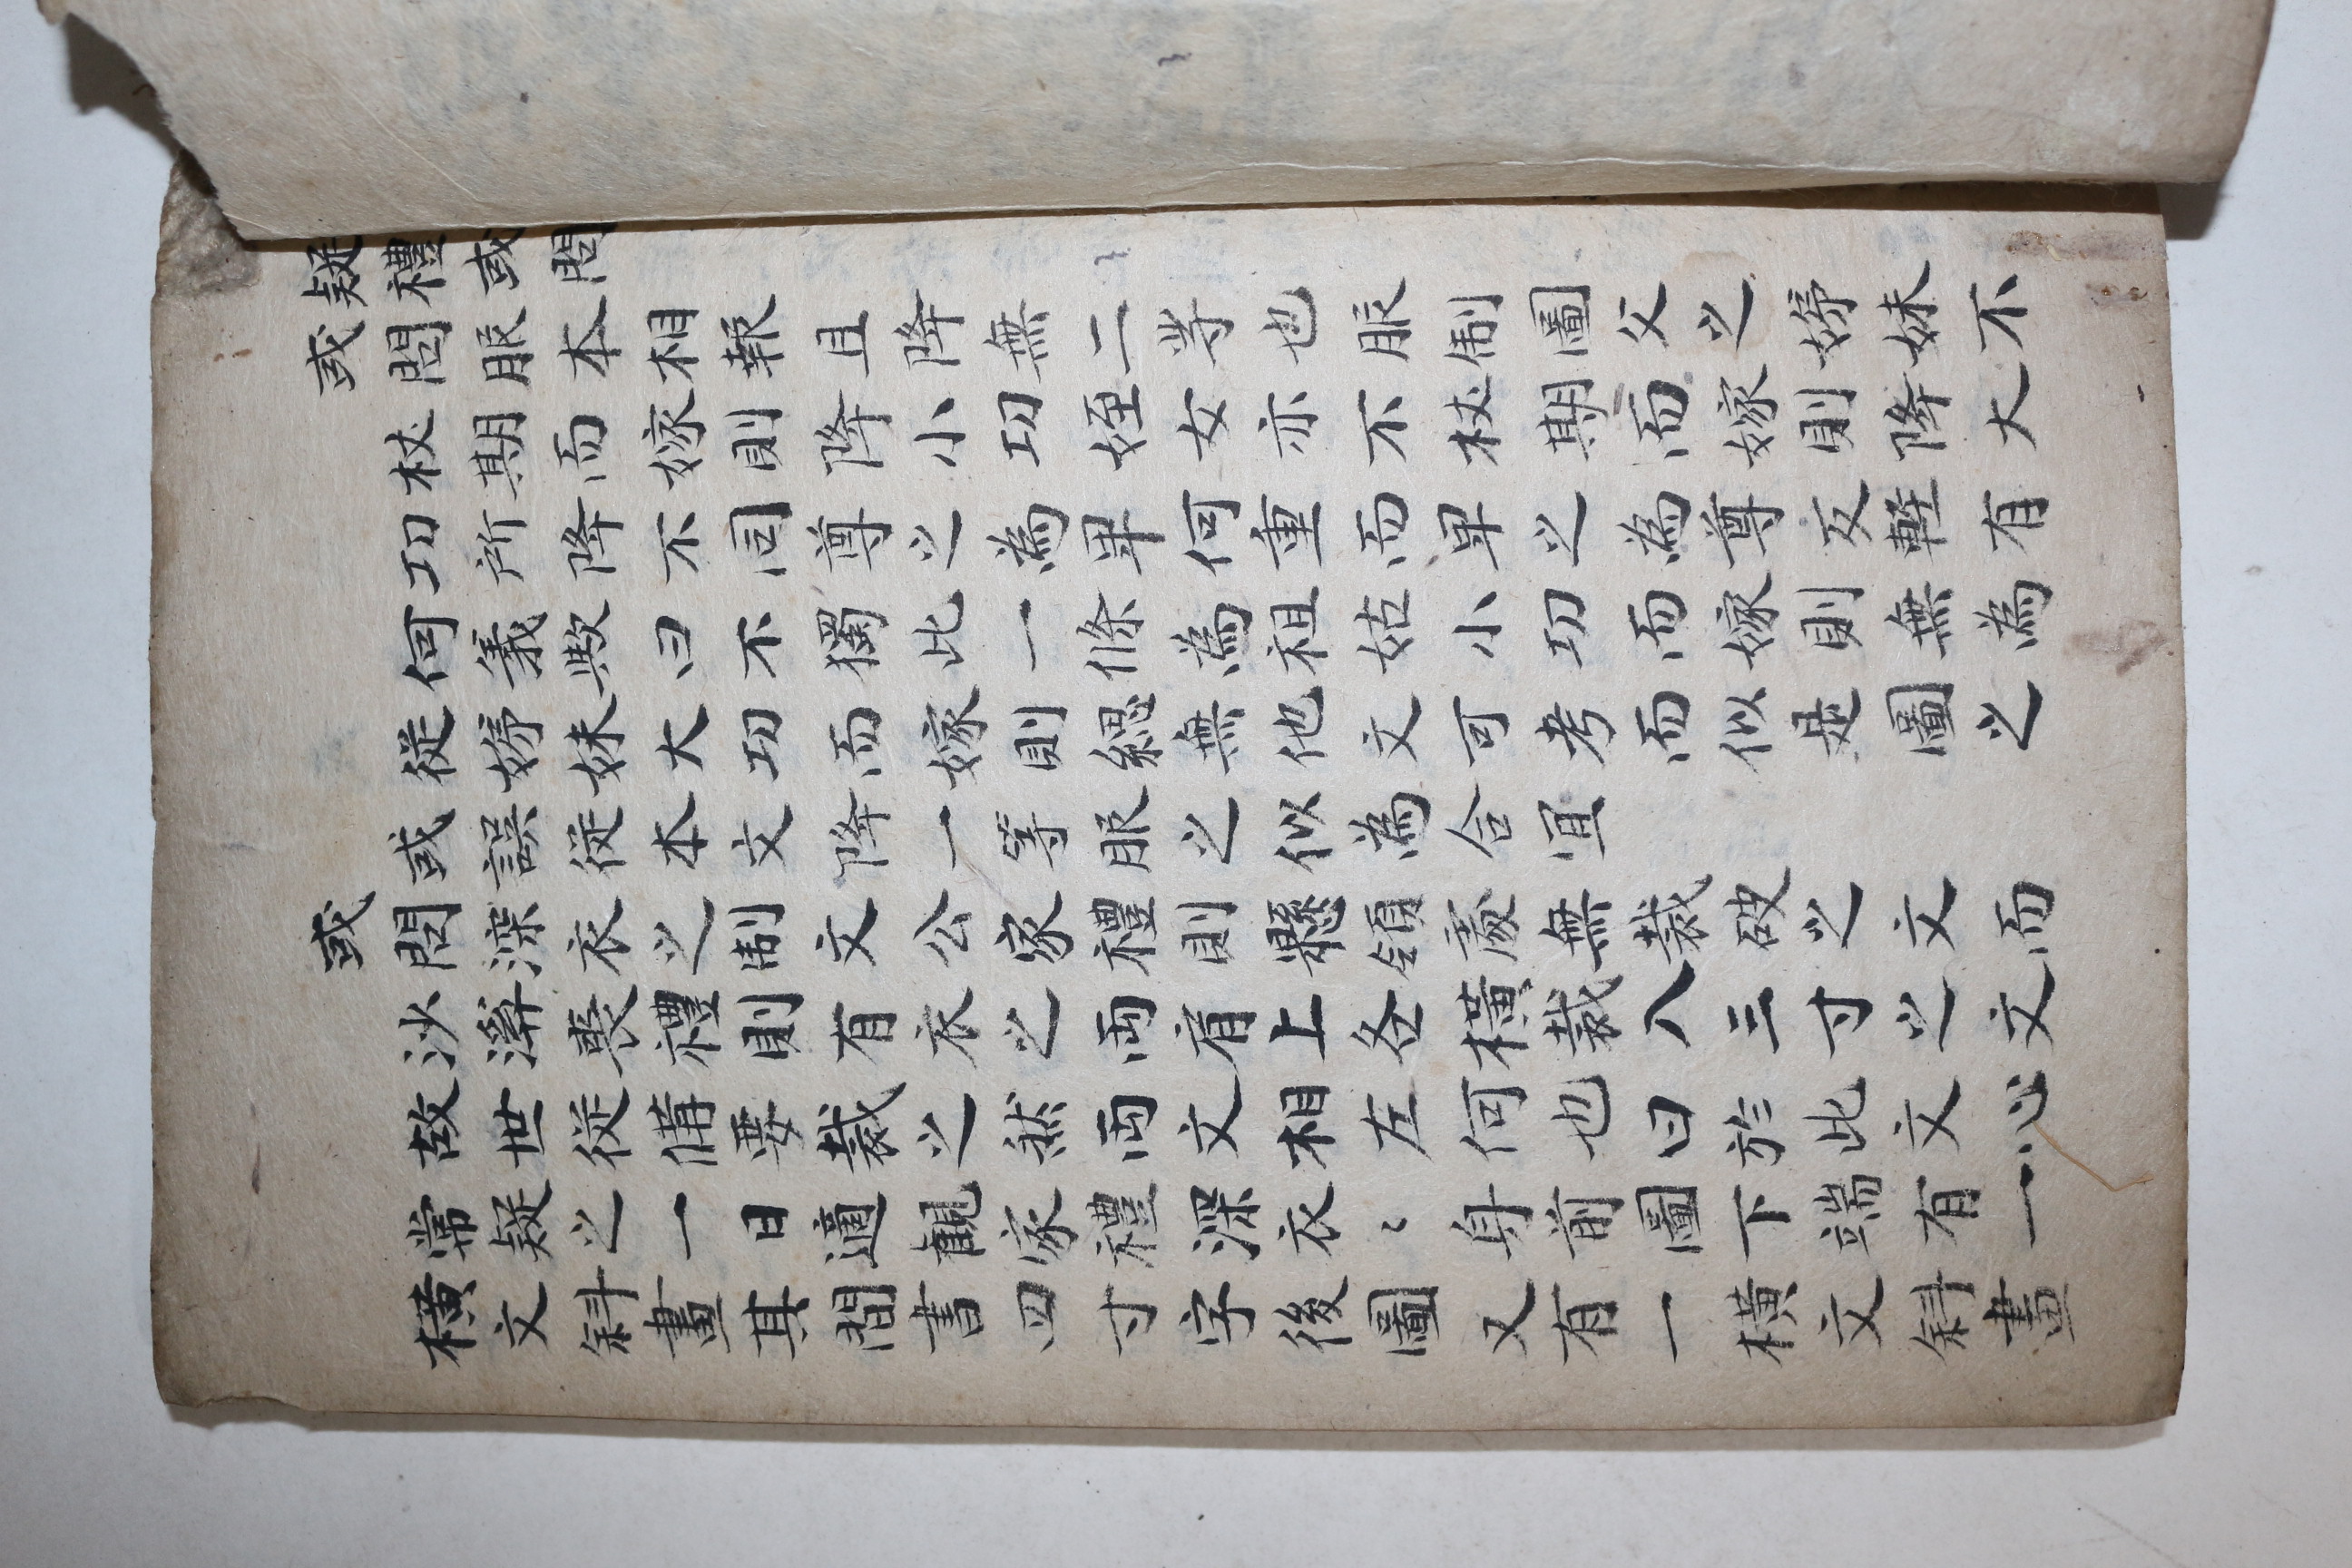 疑禮或問
或問服本相報且降無二等也服制圖父之姊妹不
杖期而嫁則降小功姪女亦不杖期而嫁則降大
功所降不同尊之為卑何重而卑之為尊反輕有
何義歟曰不獨此一條為祖姑小功而嫁則無為
從姊妹大功而嫁則緦無他文可考而似是圖之
或誤從本文降一等服之似為合宜
或問深衣之制文公家禮則懸領處無裁破之文而
沙溪喪禮則有衣之兩肩上各橫裁入三寸之文
故世從備要裁之然兩文相左何也曰於此文心
常疑之一日適觀家禮深衣〻身前圖下端有一
橫文斜畫其間書四寸字後圖又有一橫文斜畫